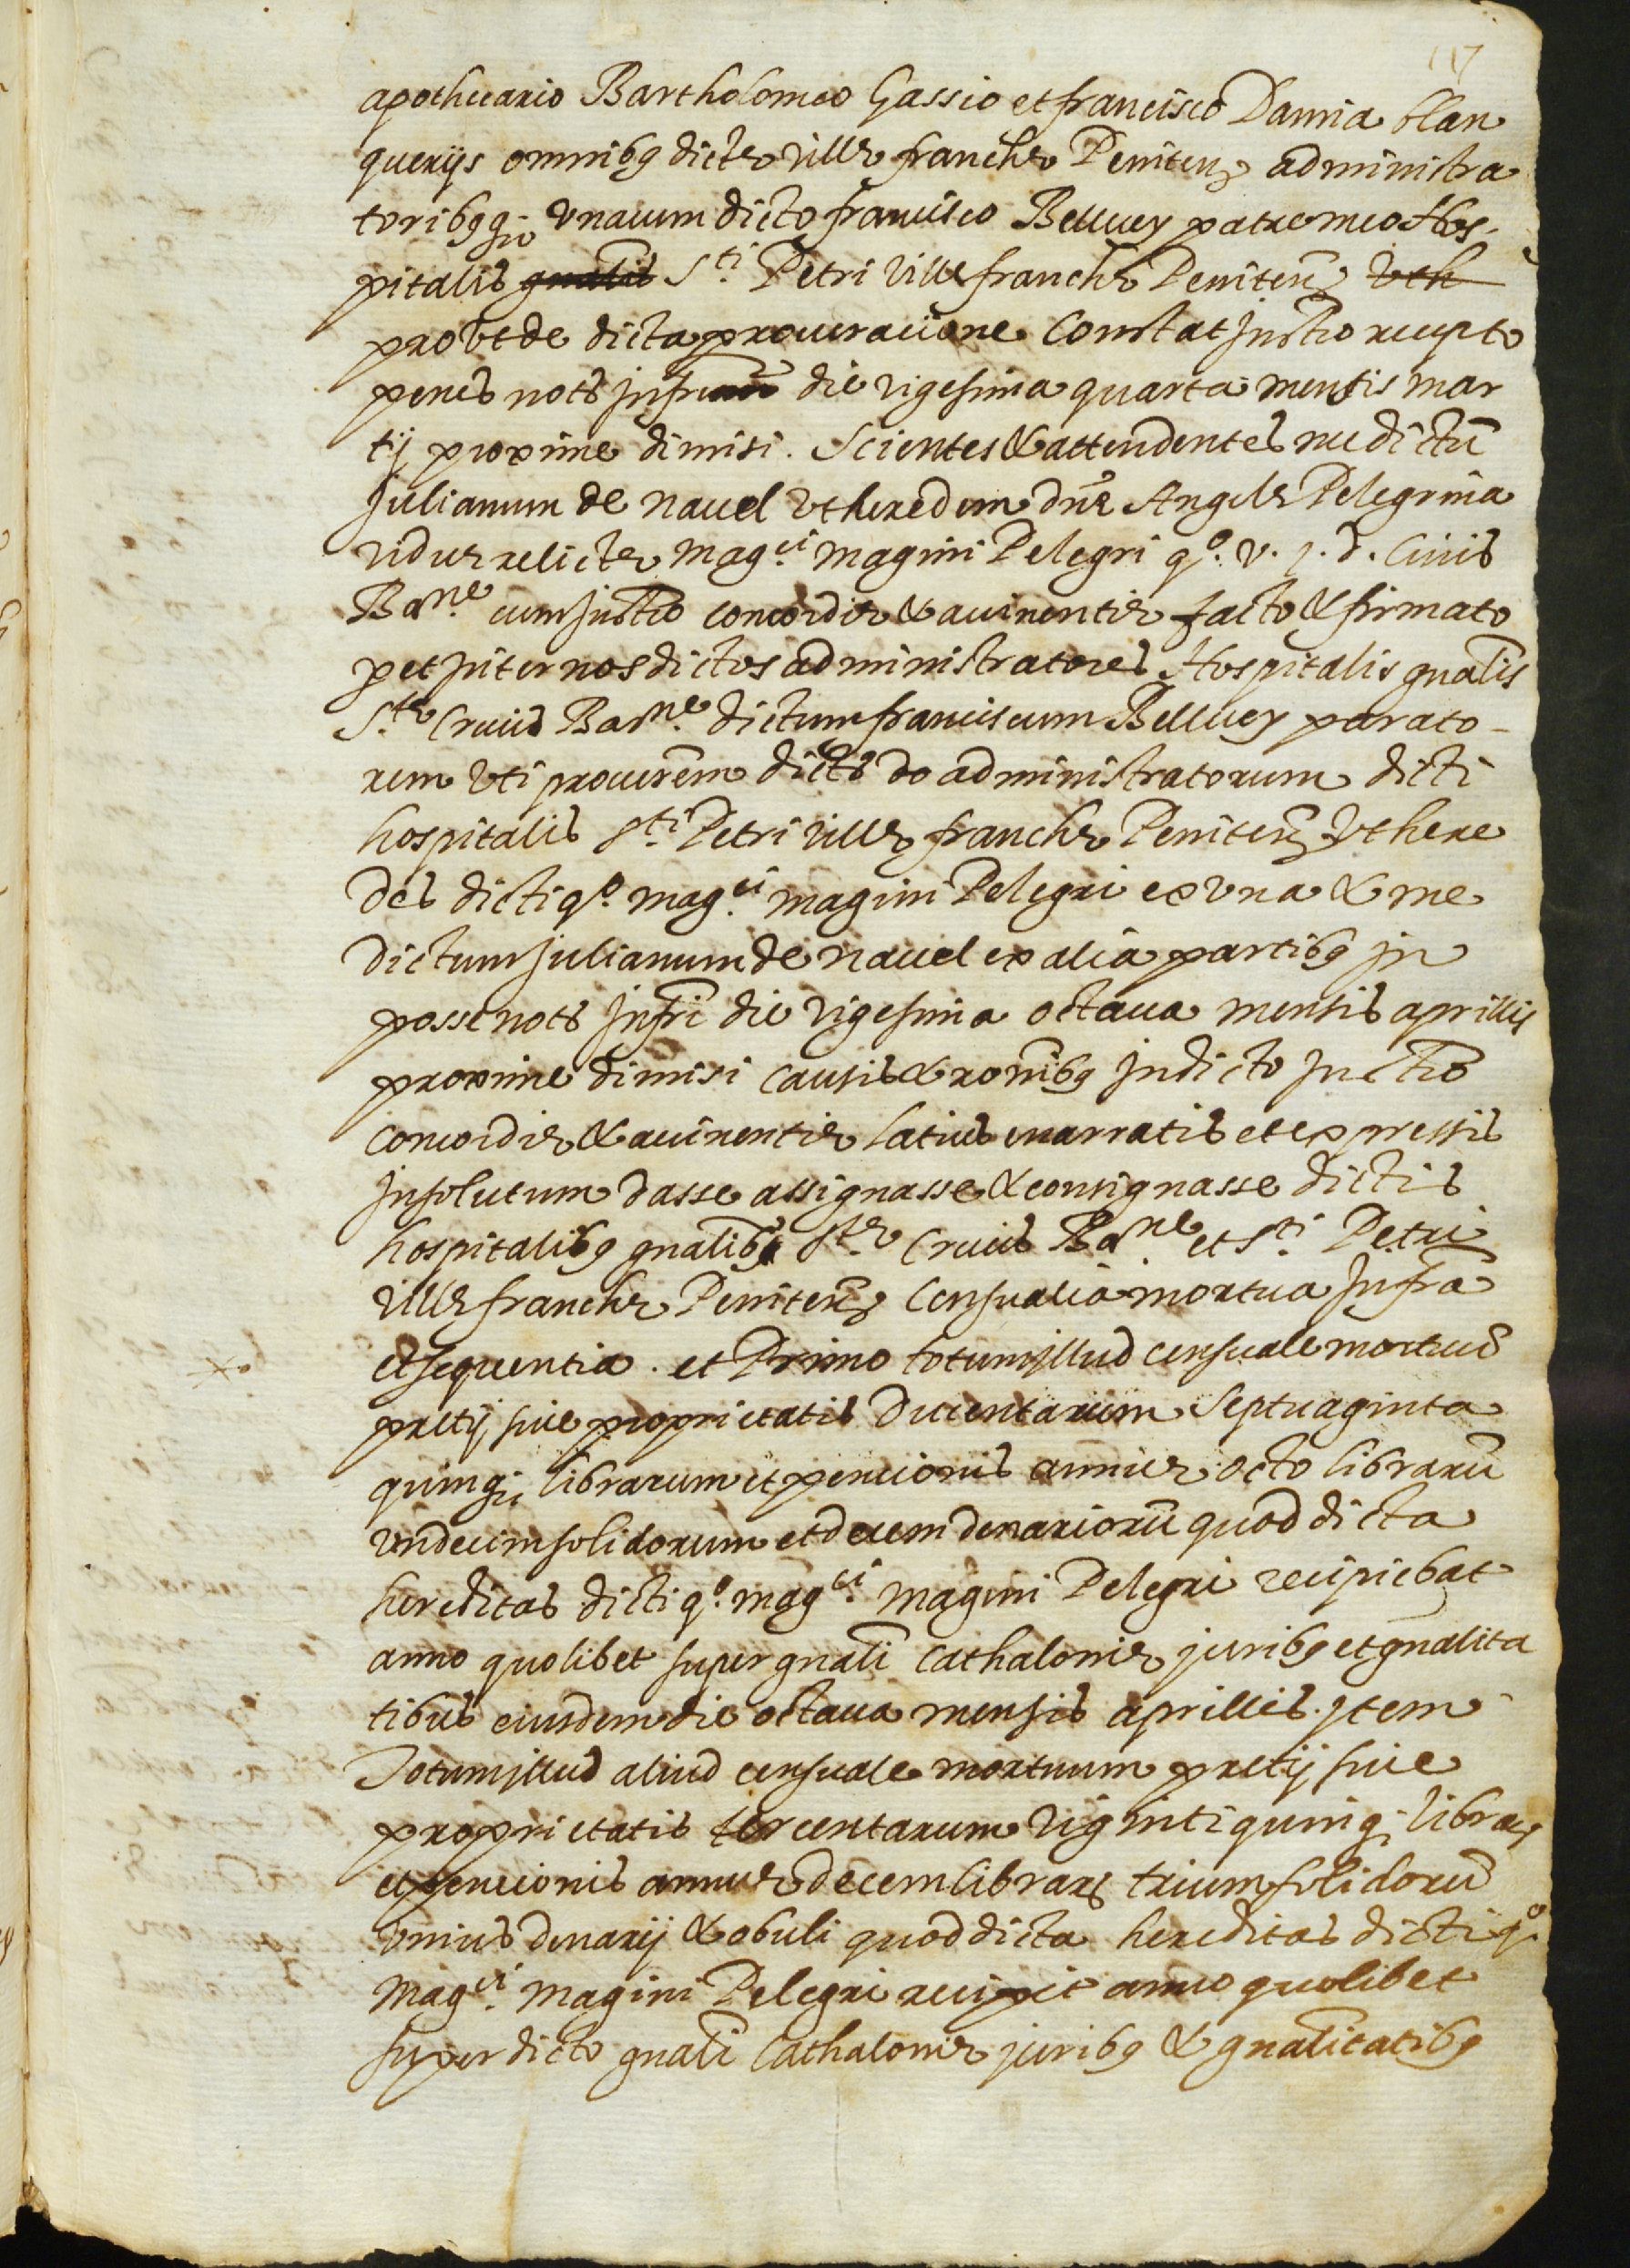 117
apothecario Bartholomeo Gassio et francisco Damia blan
querijs omnibꝫ dictę villę franchę Peniteñ administra
toribꝫ qꝫ vnacum dicto francisco Belluey patre meo Hos-
pitalis gnalis S.ti Petri Villefranchę Peniteñ Vth
prout de dicta procuracione constat Instro recepto
penes nots Infrm die vigesima quarta mensis mar
tij proxime dimisi. Scientes & attendentes me dictũ
Julianum de Nauel Vt heredem dnę Angelę Pelegrina
vidue relictę mag.ci magini Pelegri q.o v. J. d. Ciuis
Bar.ne cum Instro concordię & auinentię facto & firmato
per et Inter nos dictos administratores Hospitalis gnalis
S.tę Crucis Bar.ne dictum franciscum Belluey parato-
rem Vti procurem dicto do administratorum dicti
hospitalis S.ti Petri villę franchę Peniteñ Vt here
des dicti q.o mag.ci magini Pelegri ex vna & me
dictum Julianum de Nauel ex alia partibꝫ In
posse nots Infri die vigesima octaua mensis aprillis
proxime dimisi causis & ronibꝫ In dicto Instro
concordię & auinentię latius enarratis et expressis
Insolutum dasse assignasse & consignasse dictis
hospitalibꝫ gnalibꝫ S.tę Crucis Bar.ne et S.ti Petri
villę franchę Peniteñ Censualia mortua Infra
et sequentia. et Primo totum Illud censuale mortuũ
pretij siue proprietatis Ducentarum Septuaginta
quinqꝫ librarum et pencionis annuę octo librarũ
vndecim solidorum et decem denariorũ quod dicta
hereditas dicti q.o mag.ci magini Pelegri recipiebat
anno quolibet super gnali Cathalonię juribꝫ et gnalita
tibus eiusdem die octaua mensis aprilles. Item
Totum Illud aliud censuale mortuum pretij siue
proprietatis tercentarum viginti quinqꝫ librarꝫ
et pencionis annuę decem librarꝫ trium solidorũ
vnius denarij & obuli quod dicta hereditas dicti q.o
mag.ci magini Pelegri recipit anno quolibet
super dicto gnali Cathalonię juribꝫ & gnalitatibꝫ